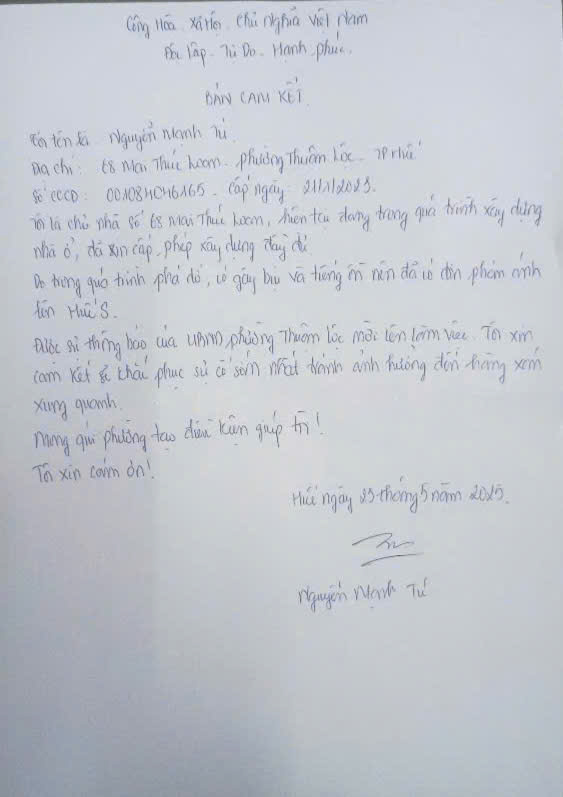 Cộng Hòa Xã Hội Chủ Nghĩa Việt Nam
Độc lập - Tự Do - Hạnh phúc.
BẢN CAM KẾT
Tôi tên là Nguyễn Mạnh Tú
Địa chỉ: 68 Mai Thúc Loan. phường Thuận Lộc. TP Huế
Số CCCD: 001084046165. Cấp ngày: 21/1/2023.
Tôi là chủ nhà số 68 Mai Thúc Loan, hiện tại đang trong quá trình xây dựng
nhà ở, đã xin cấp phép xây dựng đầy đủ
Do trong quá trình phá dỡ, có gây bụi và tiếng ồn nên đã có đơn phản ánh
lên Huế S.
Được sự thông báo của UBND phường Thuận Lộc mời lên làm việc. Tôi xin
cam kết sẽ khắc phục sự cố sớm nhất tránh ảnh hưởng đến hàng xóm
xung quanh.
Mong quí phường tạo điều kiện giúp tôi!
Tôi xin cảm ơn!
Huế ngày 23 tháng 5 năm 2025.
Nguyễn Mạnh Tú